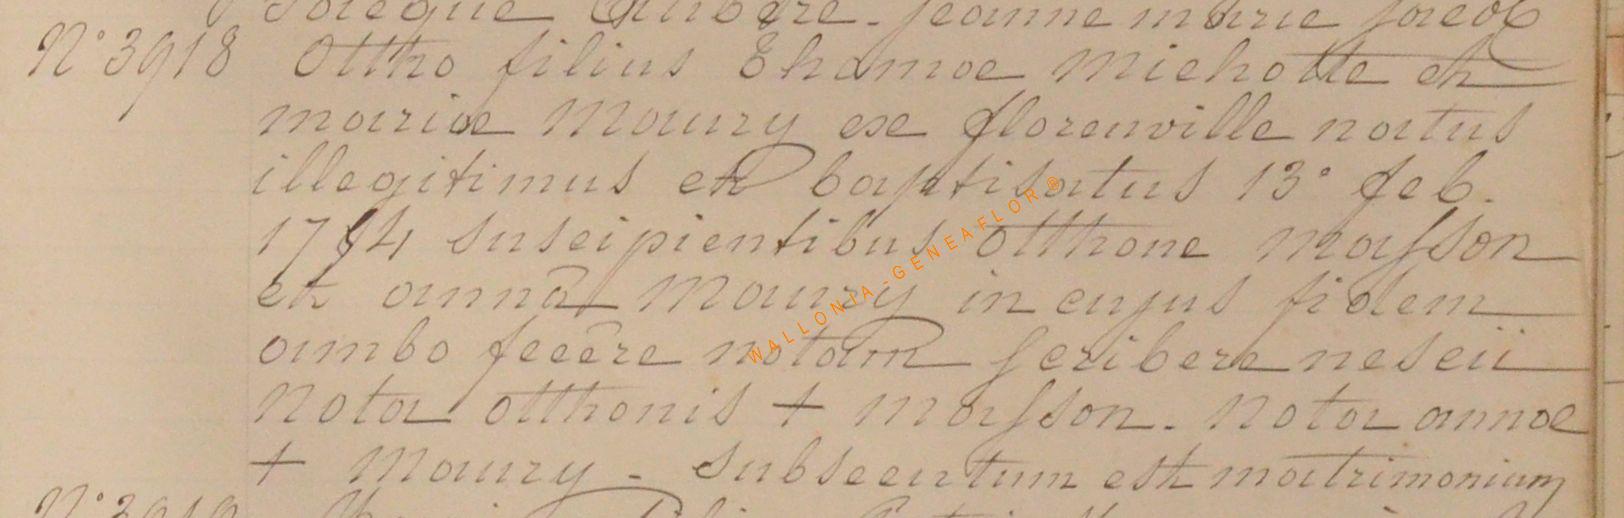 Jacque Aubert - Jeanne marie Jacob
N° 3918 Ottho filius Thamoe Michotte et
marioe Maury ex florenville natus
illegitimus et baptisatus 13° feb.
1754 suscipientibus Otthone Masson
et annâ Maury in cujus fidem
ambo fecêre notam scribere nescii
Nota otthonis + Masson. Nota annoe
+ Maury - Subsecutum est matrimonium
N° 3919
WALLONIA-GENEAFLOR®